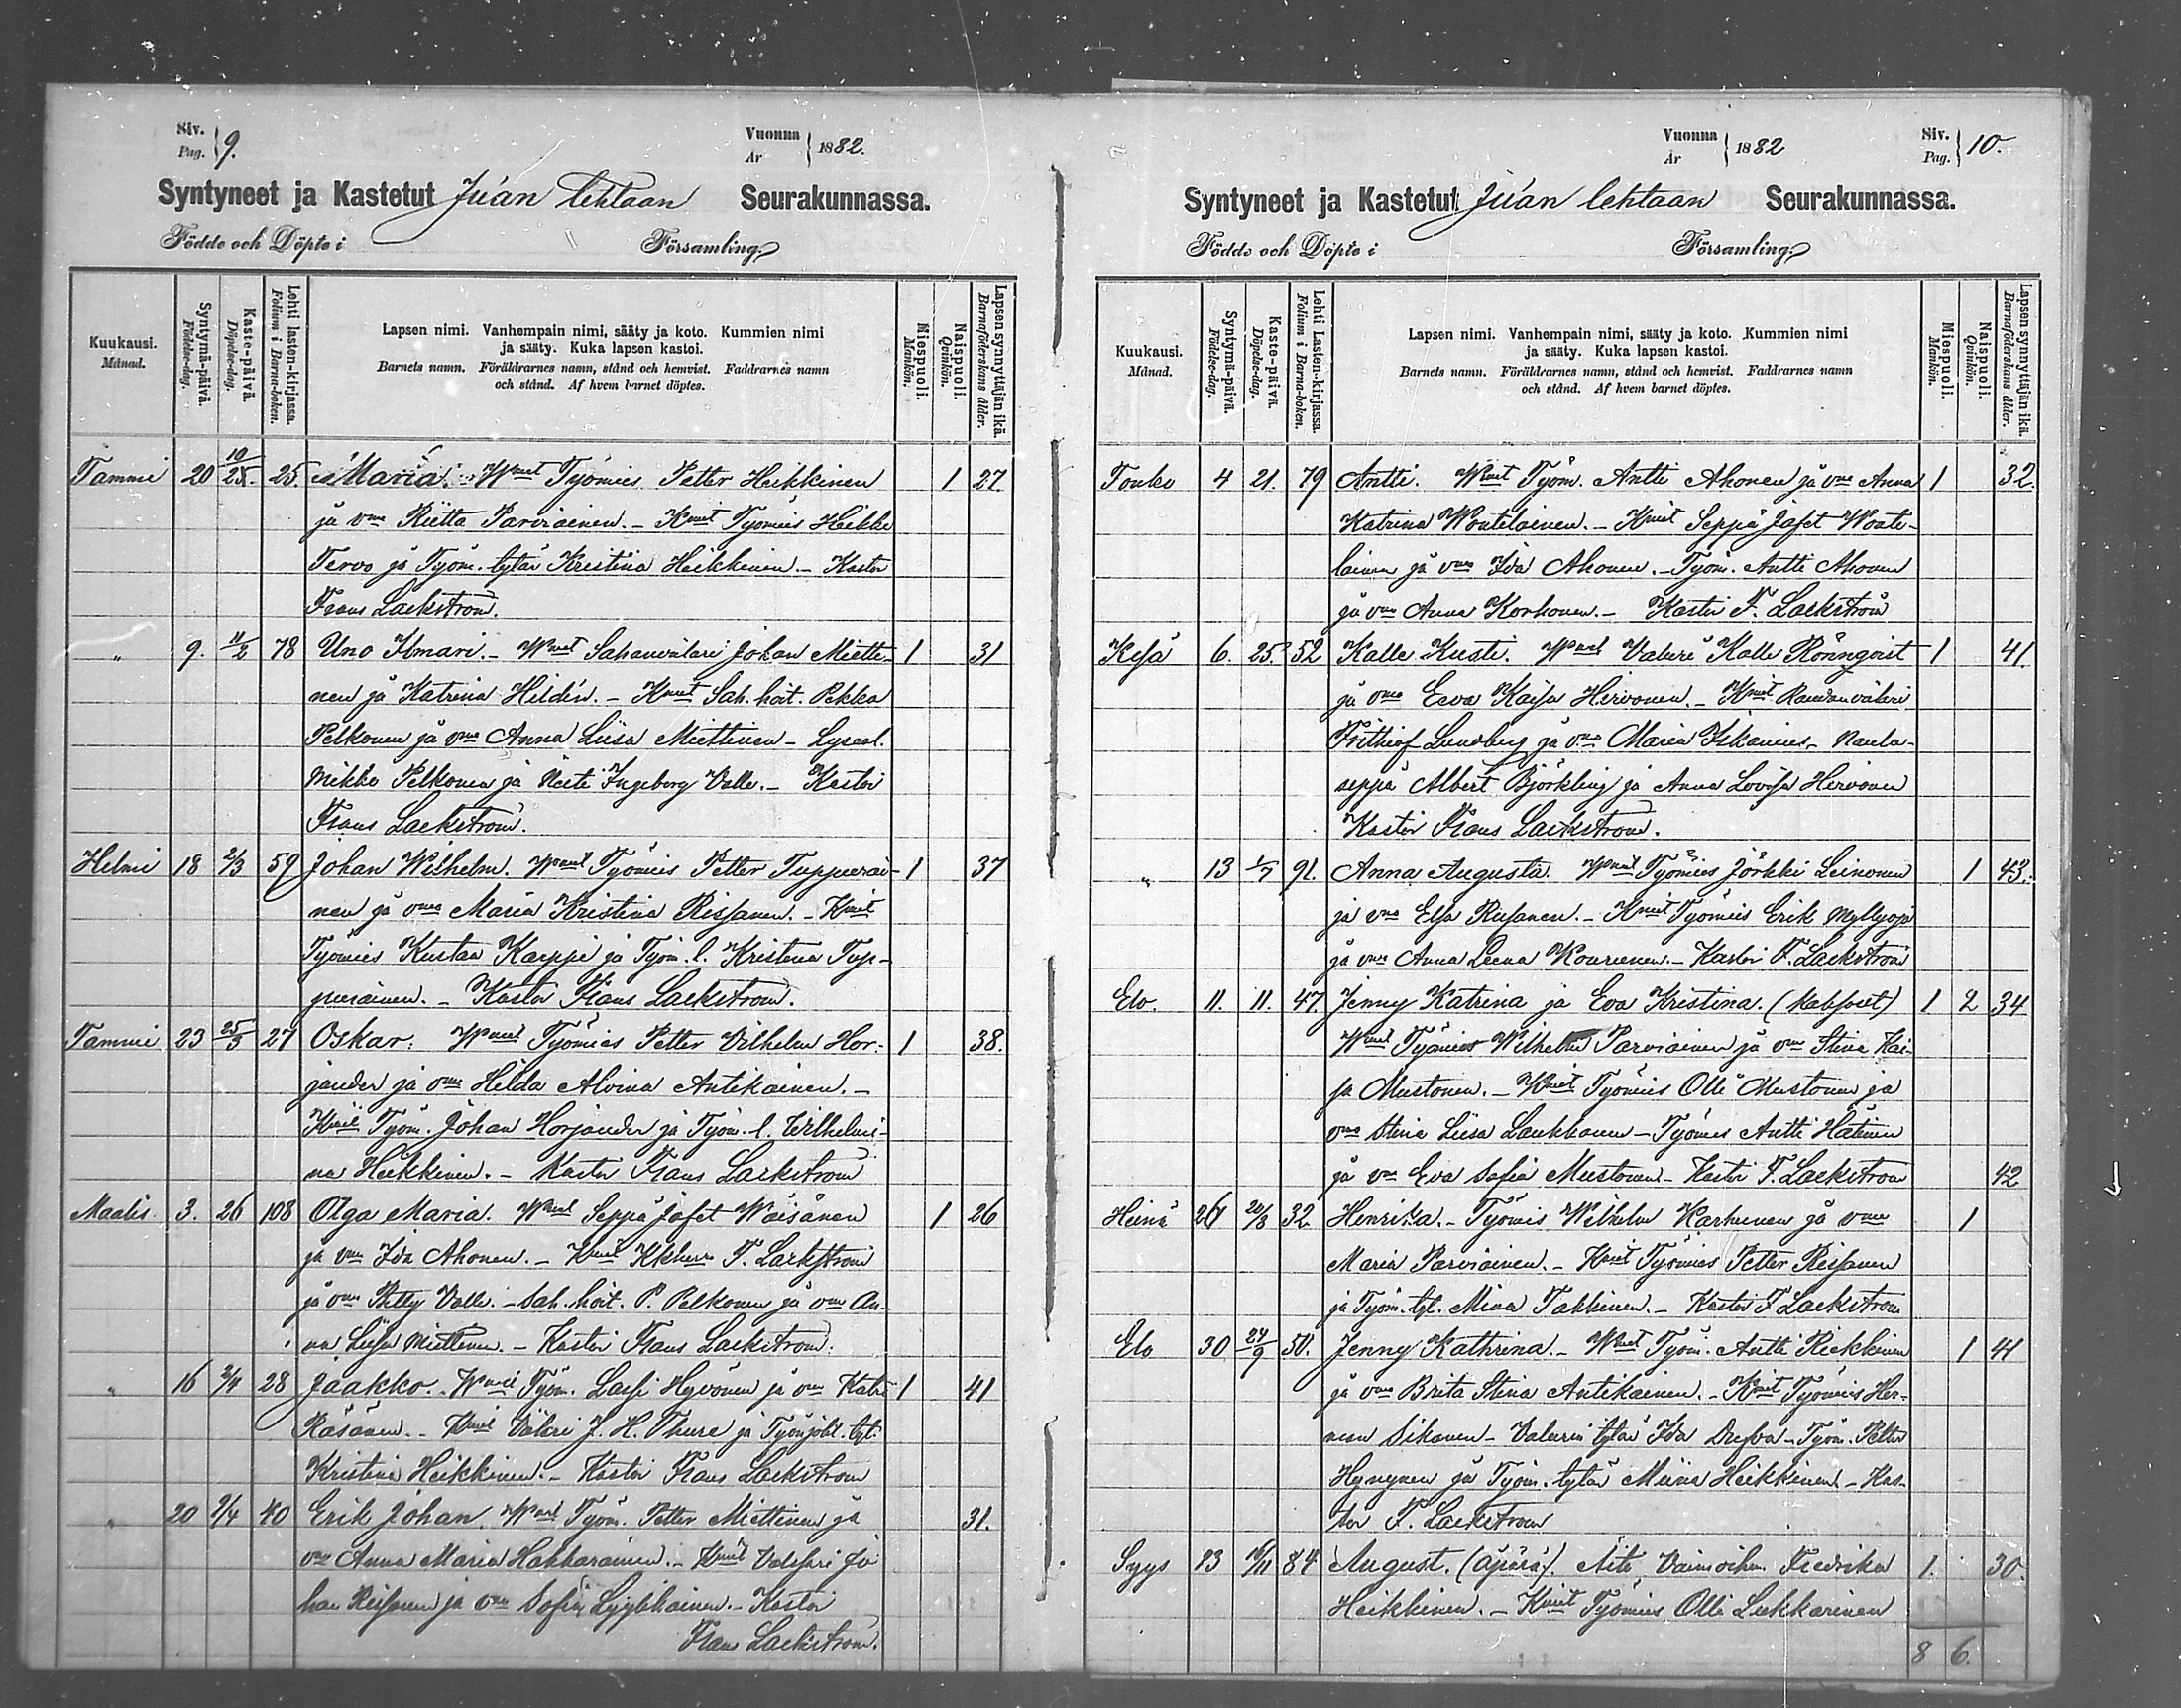 Siv. Pag. 9. Vuonna År 1882.
Syntyneet ja Kastetut Juan tehtaan Seurakunnassa.
Födde och Döpte i Församling.
Kuukausi. Månad. Syntymä-päivä. Födelse-dag. Kaste-päivä. Döpelse-dag. Lehti lasten-kirjassa. Folium i Barna-boken. Lapsen nimi. Vanhempain nimi, sääty ja koto. Kummien nimi ja sääty. Kuka lapsen kastoi. Barnets namn. Föräldrarnes namn, stånd och hemvist. Faddrarnes namn och stånd. Af hvem barnet döptes. Miespuoli. Mankön. Naispuoli. Qvinkön. Lapsen synnyttäjän ikä. Barnaföderskans ålder.
Tammi 20 25. Maria. Wmat Työmies Petter Heikkinen 1 27.
ja vmo Riitta Parviainen. - Kmit Työmies Heikki
Tervo ja Työm. tytär Kristina Heikkinen. - Kastoi
Frans Lackström.
" 9. 11/2 78 Uno Ilmari. - Wmat Sahanvälari Johan Miette- 1 31
nen ja Katrina Hildén. - Kmit Sah. hoit. Pekka
Pelkonen ja vmo Anna Liisa Miettinen - Lyseal.
Mikko Pelkonen ja Neiti Ingeborg Valle. - Kastoi
Frans Lackström.
Helmi 18 2/3 59 Johan Wilhelm. Wmat Työmies Petter Tuppurai- 1 37
nen ja vmo Maria Kristina Rissanen. - Kmit
Työmies Kustaa Karppi ja Työm. t. Kristina Tup-
purainen. - Kastoi Frans Lackström.
Tammi 23 25/3 27 Oskar. Wmat Työmies Petter Vilhelm Hor- 1 38.
jander ja vmo Hilda Alvina Antikainen. -
Kmit Työm. Johan Horjander ja Työm. t. Wilhelmi-
na Heikkinen. - Kastoi Frans Lackström
Maalis 3. 26 108 Olga Maria. Wmat Seppä Jafet Wäisänen 1 26
ja vmo Ida Ahonen. - Kmit F. Lackström
ja vmo Betty Valle. - Sah. hoit. P. Pelkonen ja vmo An-
na Liisa Miettinen. - Kastoi Frans Lackström.
" 16 2/4 28 Jaakko. Wmat Työm. Lassi Hyvönen ja vmo Katri 1 41
Räsänen. - Kmit Välari J. H. Thure ja tyt.
Kristina Heikkinen. - Kastoi Frans Lackström
" 20 2/4 40 Erik Johan. Wmat Työm. Petter Miettinen ja 31.
vmo Anna Maria Hakkarainen. - Kmit Jo
han Reissanen ja vmo Sofia Lyytikäinen. - Kastoi
Frans Lackström.
Vuonna År 1882 Siv. Pag. 10.
Syntyneet ja Kastetut Juan tehtaan Seurakunnassa.
Födde och Döpte i Församling.
Kuukausi. Månad. Syntymä-päivä. Födelse-dag. Kaste-päivä. Döpelse-dag. Lehti Lasten-kirjassa. Folium i Barna-boken. Lapsen nimi. Vanhempain nimi, sääty ja koto. Kummien nimi ja sääty. Kuka lapsen kastoi. Barnets namn. Föräldrarnes namn, stånd och hemvist. Faddrarnes namn och stånd. Af hvem barnet döptes. Miespuoli. Mankön. Naispuoli. Qvinkön. Lapsen synnyttäjän ikä. Barnaföderskans ålder.
Touko 4 21. 79 Antti. Wmat Työm. Antti Ahonen ja vmo Anna 1 32.
Katrina Woutilainen. - Kmit Seppä Jafet Wouti-
lainen ja vmo Ida Ahonen. - Työm. Antti Ahonen
ja vmo Anna Korhonen. - Kastoi F. Lackström
Kesä 6. 25. 52 Kalle Kusti. Wmat Valuri Kalle Rönnqvist 1 41.
ja vmo Eeva Kaisa Hirvonen. - Kmit Raudanvälari
Frithiof Lundberg ja vmo Maria Iskanius. Naula-
seppä Albert Björkling ja Anna Lovisa Hirvonen
Kastoi Frans Lackström.
" 13 1/7 91. Anna Augusta. Wmat Työmies Jörkki Leinonen 1 43.
ja vmo Elsa Rissanen. - Kmit Työmies Erik Myllyoja
ja vmo Anna Leena Kouvonen. - Kastoi F. Lackström
Elo. 11. 11. 47. Jenny Katrina ja Eva Kristina. (kaksoset) 1 2 34
Wmat Työmies Wilhelm Parviainen ja vmo Stina Kai-
sa Mustonen. - Kmit Työmies Olli Mustonen ja
vmo Stina Liisa Laukkanen - Työmies Antti Hätinen
ja vmo Eva Sofia Mustonen - Kastoi F. Lackström 42
Heinä 26 20/8 32 Henrika. - Työmies Wilhelm Karhunen ja vmo 1
Maria Parviainen. - Kmit Työmies Petter Rissanen
ja Työm. tyt. Miina Takkinen. - Kastoi F. Lackström
Elo 30 24/9 50. Jenny Kathrina. - Wmat Työm. Antti Riekkinen 1 41
ja vmo Brita Stina Antikainen. - Kmit Työmies Her-
man Sikanen - Valurin tytär Ida - Työm. Petter
Hynynen ja Työm. tytär Miina Heikkinen - Kas-
toi F. Lackström
Syys 23 84. August. (äpärä). Äiti Fredrika 1. 30.
Heikkinen. - Kmit Työmies Olli Liekkarinen
8 6.